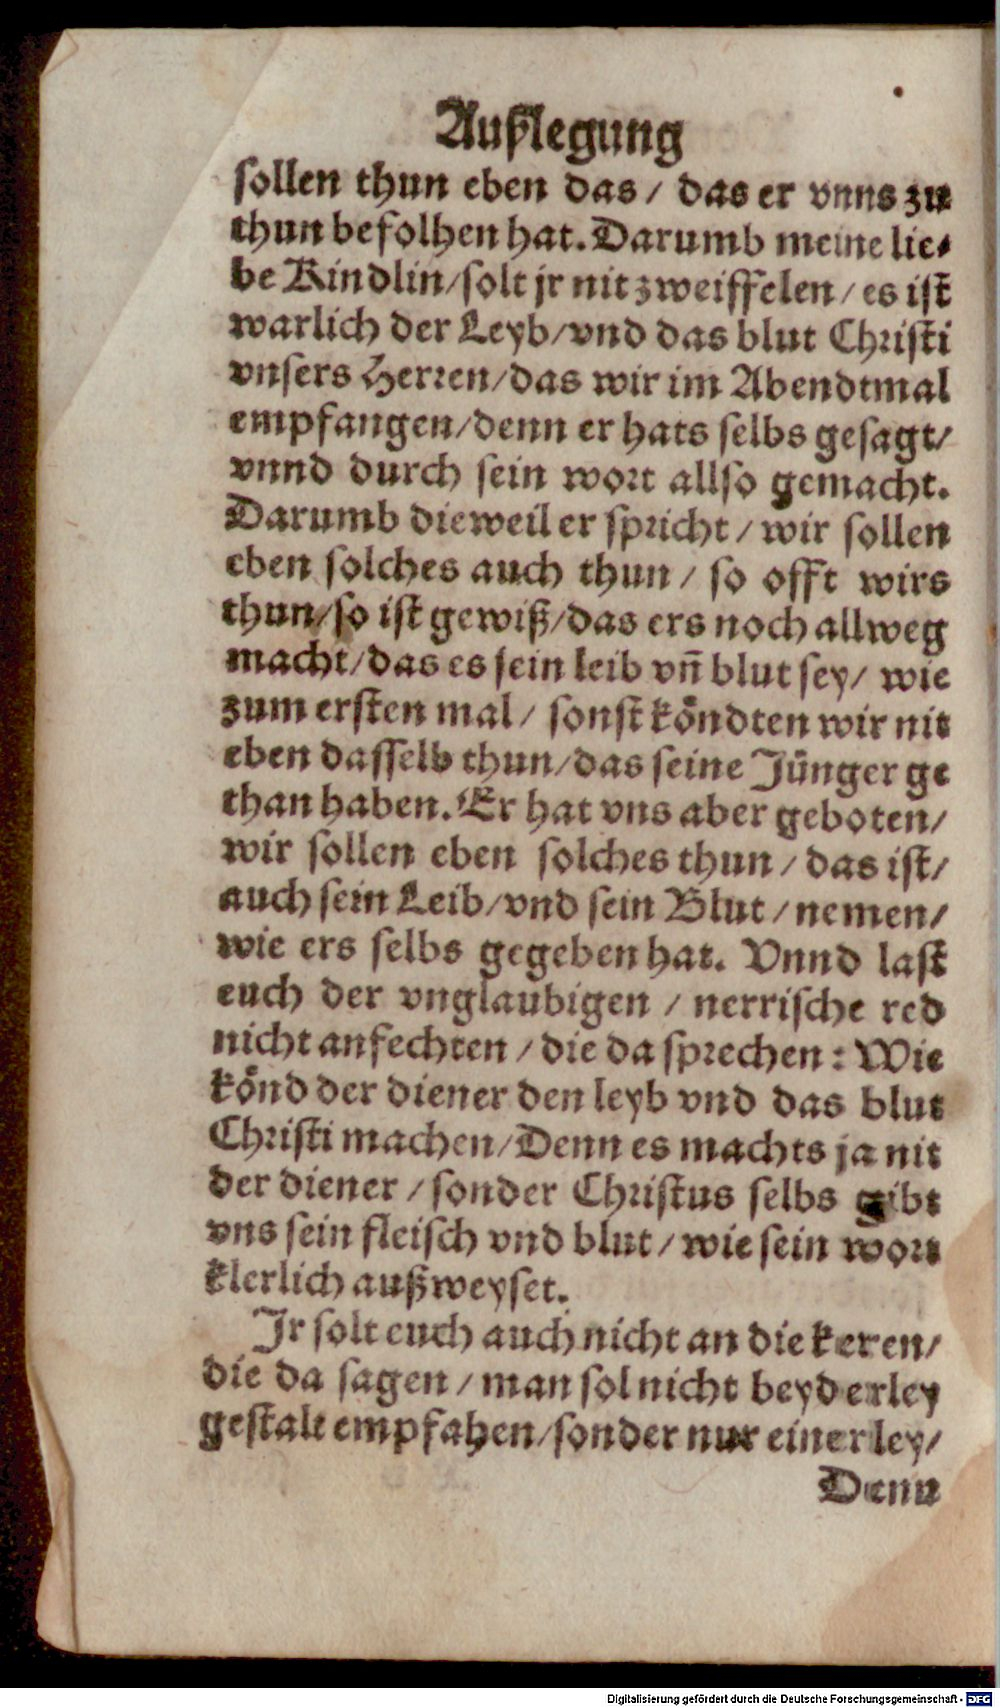 Außlegung
sollen thun eben das / das er vnns zu
thun befolhen hat. Darumb meine lie-
be Kindlin / solt jr nit zweiffelen / es ist
warlich der Leyb / vnd das blut Christi
vnsers Herren / das wir im Abendtmal
empfangen / denn er hats selbs gesagt /
vnnd durch sein wort allso gemacht.
Darumb dieweil er spricht / wir sollen
eben solches auch thun / so offt wirs
thun / so ist gewiß / das ers noch allweg
macht / das es sein leib vn̄ blut sey / wie
zum ersten mal / sonst koͤndten wir nit
eben dasselb thun / das seine Juͤnger ge
than haben. Er hat vns aber geboten /
wir sollen eben solches thun / das ist /
auch sein Leib / vnd sein Blut / nemen /
wie ers selbs gegeben hat. Vnnd last
euch der vnglaubigen / nerrische red
nicht anfechten / die da sprechen : Wie
koͤnd der diener den leyb vnd das blut
Christi machen / Denn es machts ja nit
der diener / sonder Christus selbs gibt
vns sein fleisch vnd blut / wie sein wort
klerlich außweyset.
Jr solt euch auch nicht an die keren /
die da sagen / man sol nicht beyderley
gestalt empfahen / sonder nur einerley /
Denn
Digitalisierung gefördert durch die Deutsche Forschungsgemeinschaft - DFG